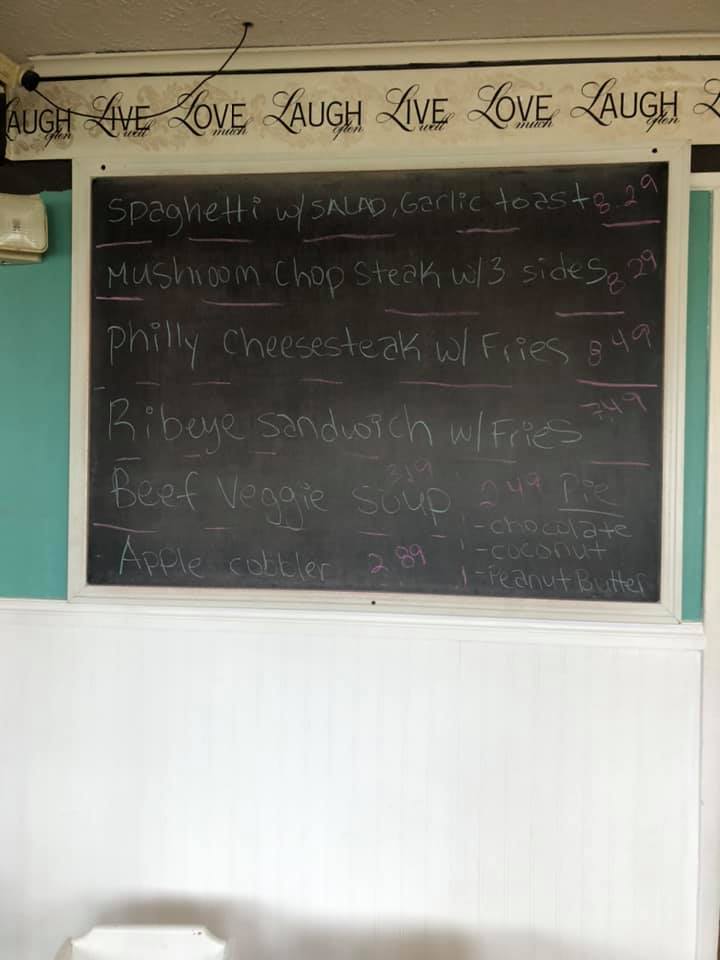 LAUGH often LIVE well LOVE much LAUGH often LIVE well LOVE much LAUGH often L
Spaghetti w/SALAD, Garlic toast 8.29
Mushroom Chop Steak w/3 sides 8.29
Philly Cheesesteak w/ Fries 8.49
Ribeye Sandwich w/Fries 7.49
Beef Veggie Soup 3.19 2.49 Pie
-chocolate
-coconut
Apple cobbler 2.89 -Peanut Butter